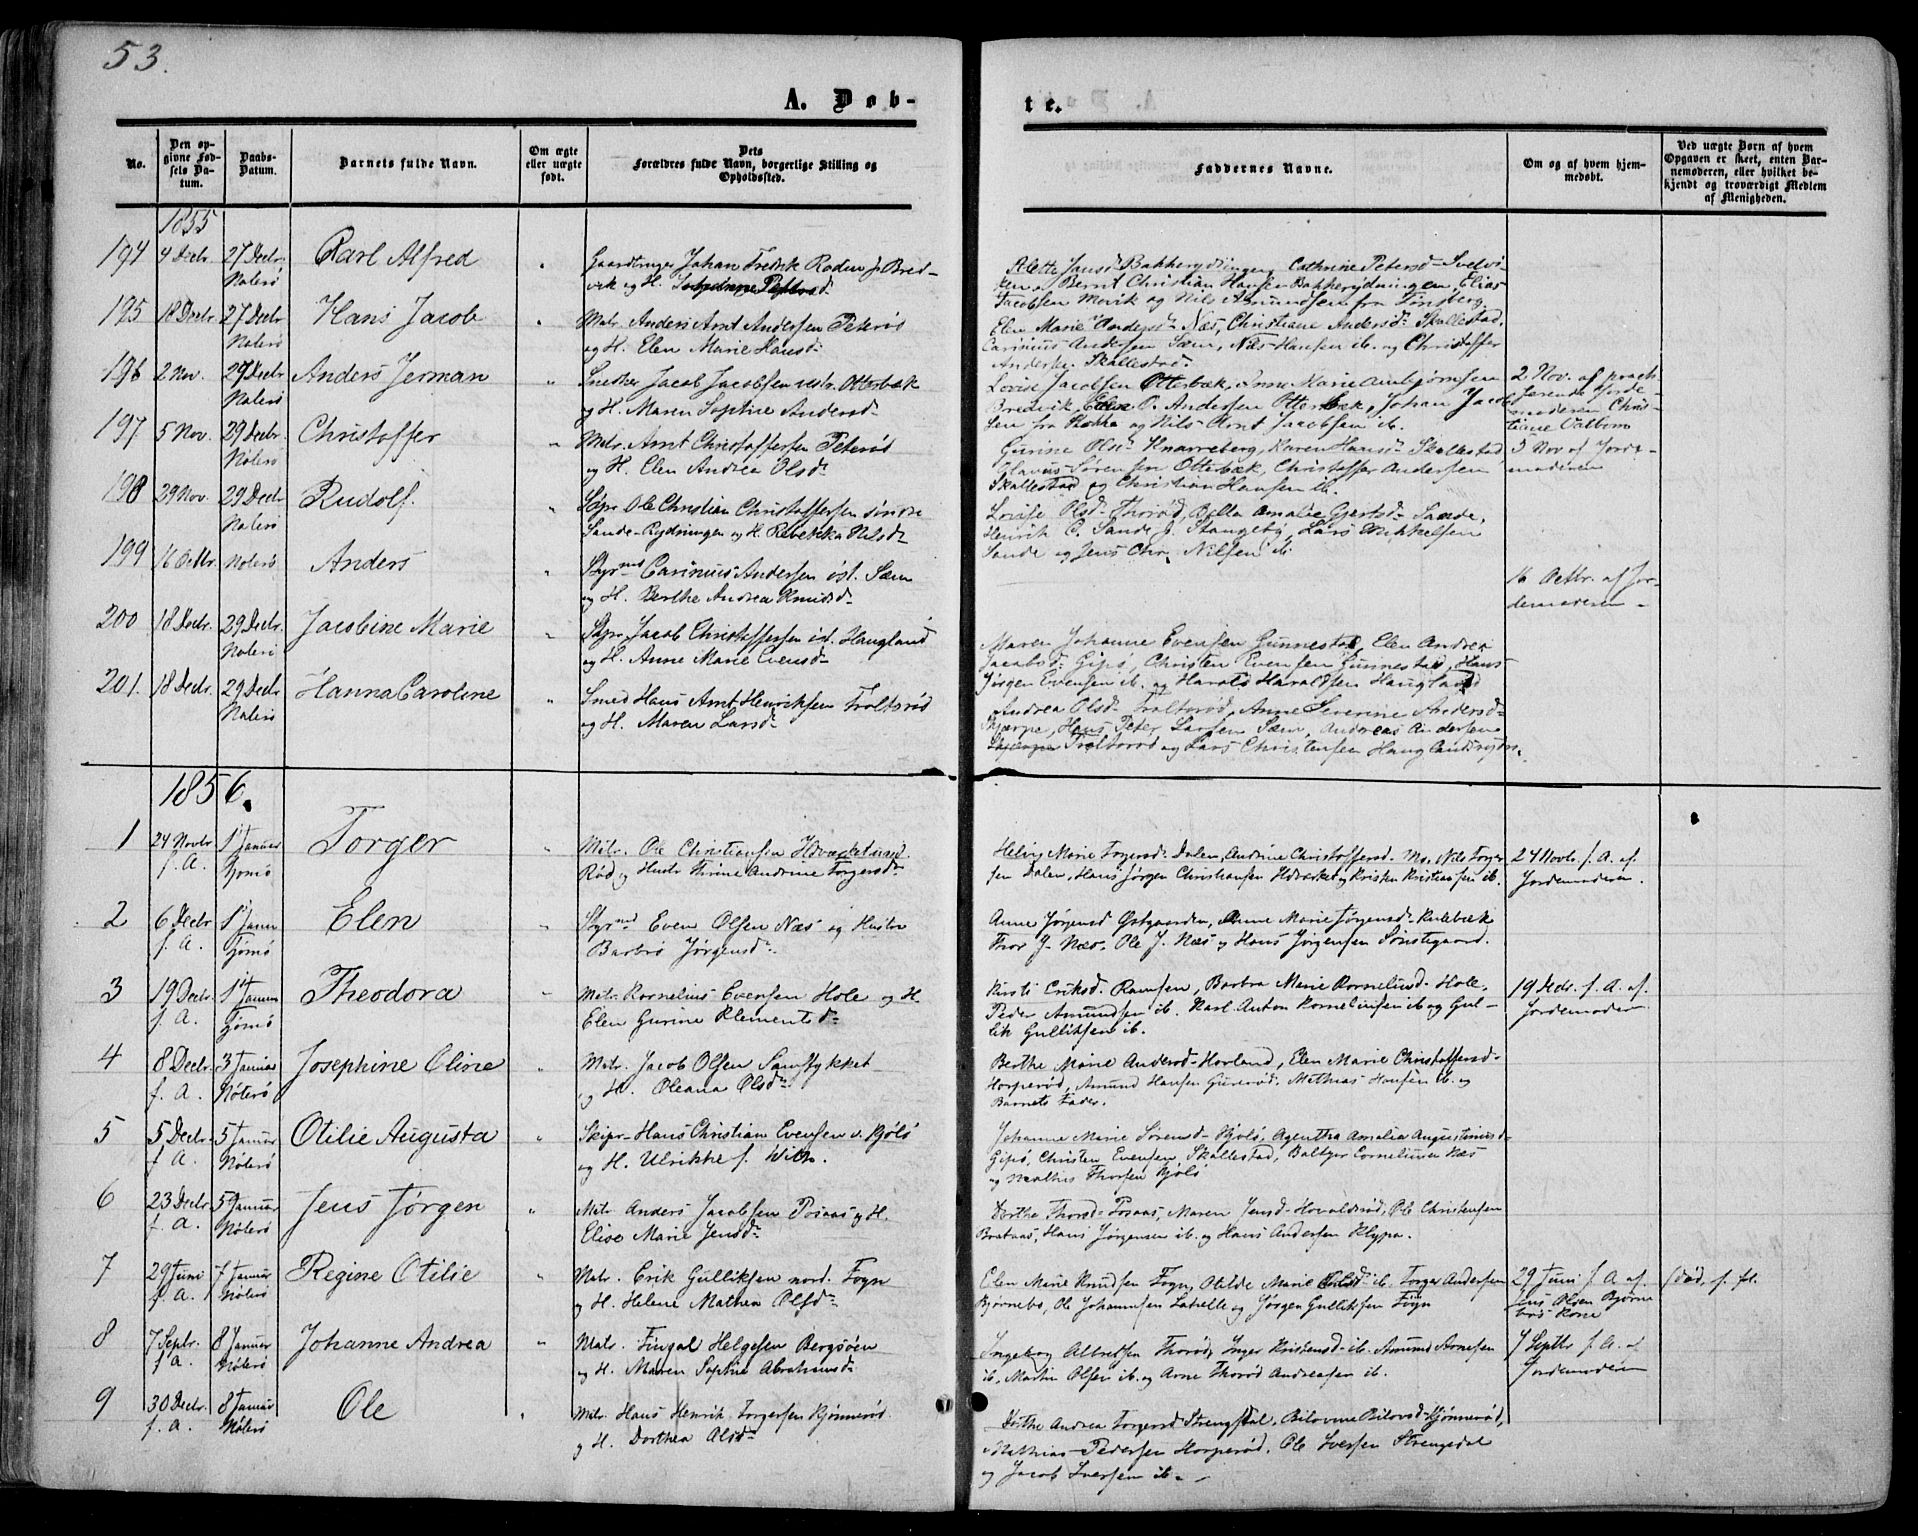 53.
A. Døb-
te.
No.
Den op-
givne Fød-
sels Da-
tum.
Daabs-
Datum.
Barnets fulde Navn.
Om ægte
eller uægte
født.
Dets
Forældres fulde Navn, borgerlige Stilling og
Opholdssted.
Faddernes Navne.
Om og af hvem hjem-
medøbt.
Ved uægte Børn af hvem
Opgaven er skeet, enten Bar-
nemoderen, eller hvilket be-
kjendt og troværdigt Medlem
af Menigheden.
1855
194 9 Decbr. 27 Decbr. Carl Alfred " Gaardbruger Johan Fredrik Roden j. Bred-
Noterø vik og H.
Alette Jansd. Bakkerydningen, Cathrine Petersd.
Bernt Christian Hansen Bakkerydningen, Elias
Jacobsen Morvik og Nils Amundsen fra Tønsberg.
195 18 Decbr 27 Decbr Hans Jacob " Matr. Anders Arnt Andersen Peterød
Noterø og H. Elen Marie Hansd.
Elen Marie Andersd. Næs, Christiane Andersd. Skallestad,
Carinius Andersen Sæm, Nils Hansen ib. og Christoffer
Anders. Skallestad.
196 2 Nov. 29 Decbr Anders Jerman " Snedker Jacob Jacobsen vestr. Otterbæk
Noterø og H. Maren Sophie Andersd.
Lovise Jacobsen Otterbæk, Anne Marie Anbjørnsen
Bredvik, O. Andersen Otterbæk, Johan Jacob-
sen fra og Nils Arnt Jacobsen ib.
2 Nov. af prack-
tiserende Jorde-
moderen Chris-
tine Valbom
197 5 Nov. 29 Decbr. Christoffer " Matr. Arnt Christoffersen Peterød
Nøterø og H. Elen Andrea Olsd.
Gurine Olsd. Knarreberg, Karen Hansd. Skallestad
Olavus Sørensen Otterbæk, Christoffer Andersen
Skallestad og Christian Hansen ib.
5 Nov af Jorde-
moderen
198 29 Nov. 29 Decbr Rudolf. Skpr Ole Christian Christoffersen søndre
Noterø Sande-Rydningen og H. Rebekka Nilsd.
Lovise Olsd. Thorød, Amalie Gjertsd. Sande,
Henrik C. Sande j. Stangeby, Lars Mikkelsen
Sande og Jens Chr. Nilsen ib.
199 16 Octbr. Noterø Anders " Styrmd Carinius Andersen øst. Sæm
og H. Berthe Andrea Knudsd.
16 Octbr. af Jor-
demoderen
200 18 Decbr. 29 Decbr. Jacobine Marie " Skpr Jacob Christoffersen øst. Haugland
Noterø og H. Anne Marie Evensd.
Maren Johanne Evensen Gunnestad, Elen Andrea
Jacobsd. Gipø, Christen Evensen Gunnestad, Hans
Jørgen Evensen ib. og Harald Haraldsen Haugland
201. 18 Decbr. 29 Decbr Hanna Caroline " Smed Hans Arnt Henriksen Troltsrød
Noterø og H. Maren Larsd.
Andrea Olsd. Troltsrød, Anne Severine Andersd.
Skjærpe, Hans Peter Larsen Sæm, Andreas Andersen
Troltsrød og Lars Christensen Hauglandrydn.
1856.
1 24 Novbr 1 Januar Torger " Matr. Ole Christiansen
f. A. Tjømø Rød og Hustr Thrine Andrine Torgersd.
Helvig Marie Torgersd. Dalen, Andrine Christoffersd. Mo, Nils Torger-
sen Dalen, Hans Jørgen Christiansen og Kristen Kristiansen ib.
24 Novbr. f. A. af
Jordemoderen.
2 6 Decbr 1 Janu Elen " Styrmd Even Olsen Næs og Hustru
f. A. Tjømø Barbro Jørgensd.
Anne Jørgensd Østgaarden, Anne Marie Jørgensd. Kulebæk
Thor J. Næs, Ole J. Næs og Hans Jørgensen Sønstegaard.
3 19 Decbr 1 Januar Theodora " Matr. Kornelius Evensen Hole og H.
f. A. Tjømø Elen Gurine Klementsd.
Kirsti Eriksd. Ramsen, Barbra Marie Korneliusd. Hole,
Peder Amundsen ib. Karl Anton Korneliussen ib og Gul-
lik Gulliksen ib.
19 Decbr. f. A. af.
Jordemoderen
4 8 Decbr. 3 Januar Josephine Oline " Matr. Jacob Olsen Sandstykket
f. A. Nøterø og H. Oleana Olsd.
Berthe Marie Andersd. Horland, Elen Marie Christoffersd.
Horperød, Amund Hansen Gurerød. Mathias Hansen ib. og
Barnets Fader.
5 5 Decbr. 5 Januar Otilie Augusta " Skipr. Hans Christian Evensen v. Kjøle
f. A. Nøterø og H. Ulrikke f. With.
Johanne Marie Sørensd. Kjøle, Agentha Amalia Augustinusd.
Gipø, Christen Evensen, Skallestad, Baltzer Corneliussen Næs
og Mathis Thorsen Kjøle
6 23 Decbr 5 Januar Jens Jørgen " Matr Anders Jacobsen Posaas og H.
f. A. Nøterø Elise Marie Jensd.
Dorthe Thorsd. Posaas, Maren Jensd. Hovaldsrød, Ole Christensen
Brataas, Hans Jørgensen ib. og Hans Andersen Klypa.
7 29 Juni 7 Januar Regine Otilie " Matr. Erik Gulliksen nord. Fogn
f. A. Nøterø og H. Helene Mathea Olsd.
Elen Marie Knudsen Fogn, Otilde Marie ib. Torger Andersen
Bjørnebo, Ole Johannsen Labelle og Jørgen Gulliksen Fogn
29 Juni f. A. af.
Jens Olsen Bjørne
bos Kone
(død, f. fl.
8 7 Septr. 8 Januar Johanne Andrea " Matr. Fingal Helgesen Bergsøen
f. A. Nøterø og H. Maren Sophie Abrahamsd.
Ingeborg Albretsen Thorød, Inger Kristensd. ib. Amund Arnesen
ib. Martin Olsen ib. og Arne Thorød Andreasen ib.
7 Septbr f. A. af
Jordemoderen
9 30 Decbr. 8 Januar Ole " Matr. Hans Henrik Torgersen Kjønnerød.
f. A. Nøterø og H. Dorthea Olsd.
Dorthe Andrea Torgersd Strengsdal, Kjønnerød,
Mathias Pedersen Horperød, Ole Iversen Strengsdal
og Jacob Iversen ib.